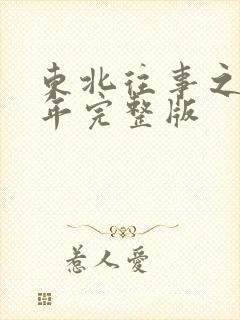 東北往事之
年完整版
惹人愛